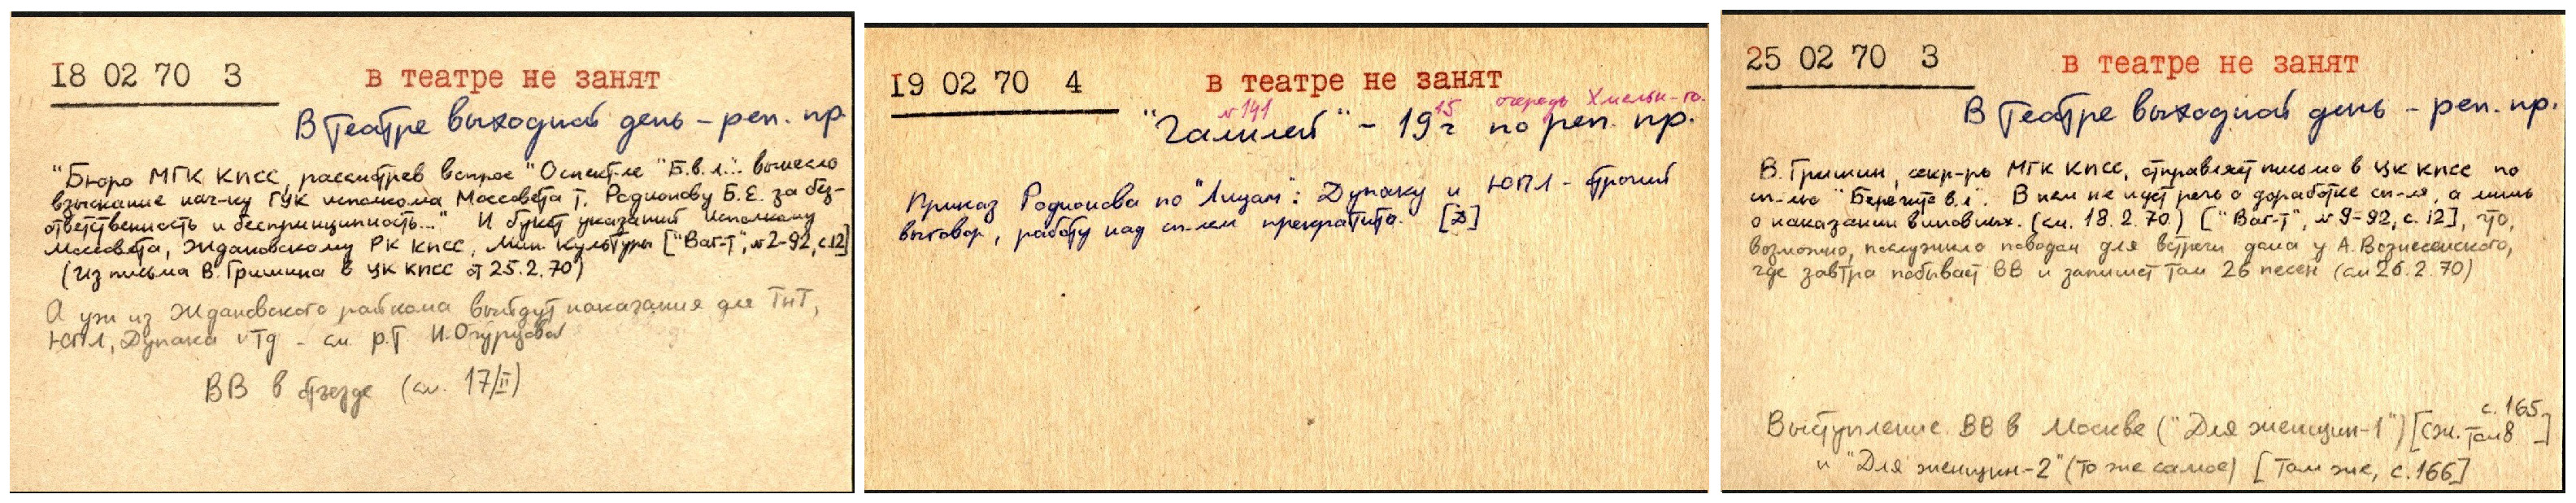 I8 02 70 3 в театре не занят
В театре выходной день – реп. пр.
"Бюро МГК КПСС, рассмотрев вопрос "О спект-ле "Б.в.л."... вынесло
взыскание нач-ку ГУК исполкома Моссовета т. Родионову Б.Е. за без-
ответственность и беспринципность..." И букет указаний исполкому
Моссовета, Ждановскому РК КПСС, Мин. культуры ["Ваг-Т", №2-92, с.12]
(Из письма В. Гришина в ЦК КПСС от 25.2.70)
А уж из Ждановского райкома выйдут наказания для ТнТ,
ЮПЛ, Дупака и тд – см р.т И.Огурцовой
ВВ в отъезде (см. 17/II)
I9 02 70 4 в театре не занят
№ 141 15 очередь Хмельн-го.
"Галилей" – 19 ч по реп. пр.
Приказ Родионова по "Лицам": Дупаку и ЮПЛ – строгий
выговор, работу над сп-лем прекратить. [Д]
25 02 70 3 в театре не занят
В театре выходной день – реп. пр.
В. Гришин, секр-рь МГК КПСС, отправляет письмо в ЦК КПСС по
сп-лю "Берегите в.л". В нем не идет речь о доработке сп-ля, а лишь
о наказании виновных. (см. 18.2.70) ["Ваг-Т", №9-92, с.12], что,
возможно, послужило поводом для встречи дома у А. Вознесенского,
где завтра побывает ВВ и запишет там 26 песен (см 26.2.70)
с. 165
Выступление ВВ в Москве ("Для женщин-1") [сж. Том8 ]
и "Для женщин-2" (то же самое) [Там же, с.166]